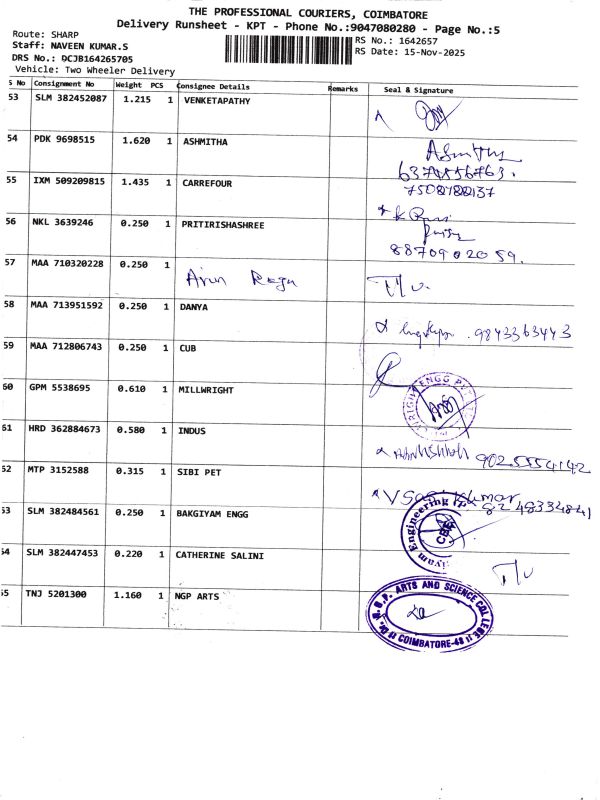 THE PROFESSIONAL COURIERS, COIMBATORE
Delivery Runsheet - KPT - Phone No.:9047080280 - Page No.:5
Route: SHARP
RS No.: 1642657
Staff: NAVEEN KUMAR.S
RS Date: 15-Nov-2025
DRS No.: DCJB164265705
Vehicle: Two Wheeler Delivery
S No Consignment No Weight PCS Consignee Details Remarks Seal & Signature
53 SLM 382452087 1.215 1 VENKETAPATHY
54 PDK 9698515 1.620 1 ASHMITHA
6374856763.
55 IXM 509209815 1.435 1 CARREFOUR
7508788137
56 NKL 3639246 0.250 1 PRITIRISHASHREE
8870902059.
57 MAA 710320228 0.250 1
Arun Raja
T/u.
58 MAA 713951592 0.250 1 DANYA
9843363443
59 MAA 712806743 0.250 1 CUB
60 GPM 5538695 0.610 1 MILLWRIGHT
61 HRD 362884673 0.580 1 INDUS
9025554142
62 MTP 3152588 0.315 1 SIBI PET
53 SLM 382484561 0.250 1 BAKGIYAM ENGG
54 SLM 382447453 0.220 1 CATHERINE SALINI
T/u
55 TNJ 5201300 1.160 1 NGP ARTS
Dr. N.G.P. ARTS AND SCIENCE COLLEGE
COIMBATORE-48